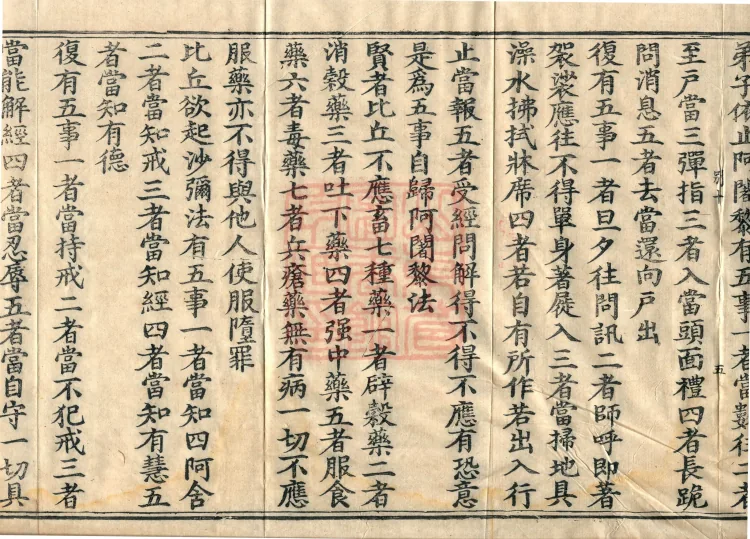 弟子依止阿闍黎有五事一者當數往二者
至戸當三彈指三者入當頭面禮四者長跪
問消息五者去當還向戸出
復有五事一者旦夕往問訊二者師呼即著
袈裟應往不得單身著屣入三者當掃地具
澡水拂拭牀席四者若自有所作若出入行
止當報五者受經問解得不得不應有恐意
是爲五事自歸阿闍黎法
賢者比丘不應畜七種藥一者辟穀藥二者
消穀藥三者吐下藥四者强中藥五者服食
藥六者毒藥七者兵瘡藥無有病一切不應
服藥亦不得與他人使服墮罪
比丘欲起沙彌法有五事一者當知四阿含
二者當知戒三者當知經四者當知有慧五
者當知有德
復有五事一者當持戒二者當不犯戒三者
當能解經四者當忍辱五者當自守一切具
五